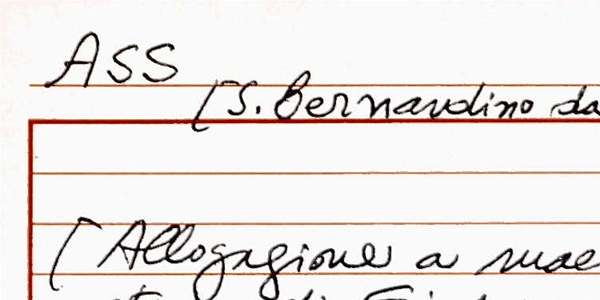 ASS
[S. Bernardino da
[Allogagione a mae